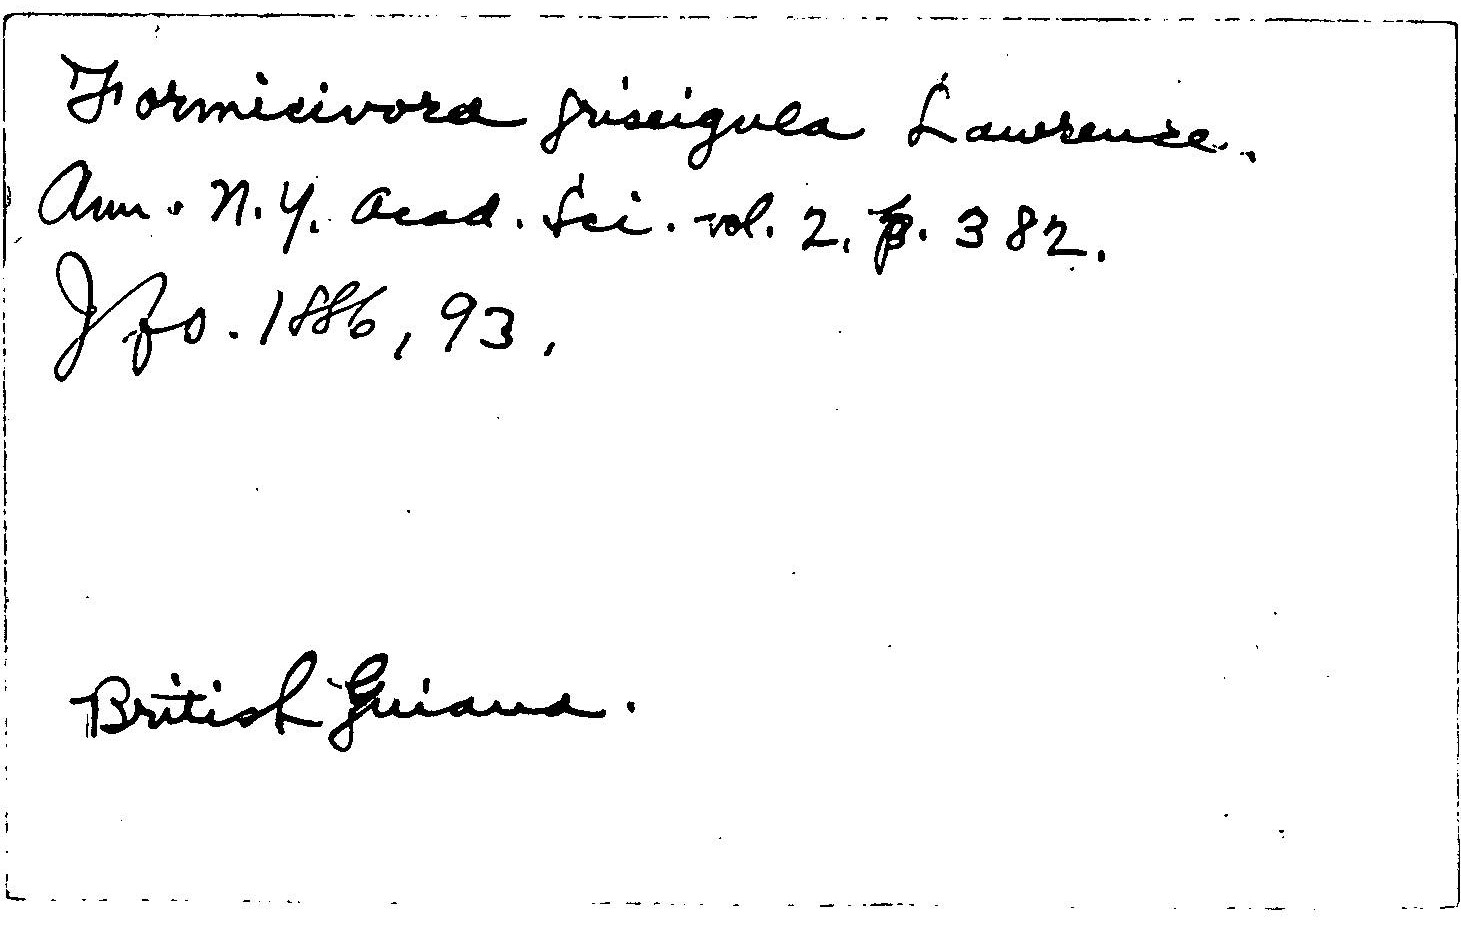 Formicivora griseigula Lawrence.
Ann. N.Y. Acad. Sci. vol. 2, p. 382.
Jfo. 1886, 93,
British Guiana.